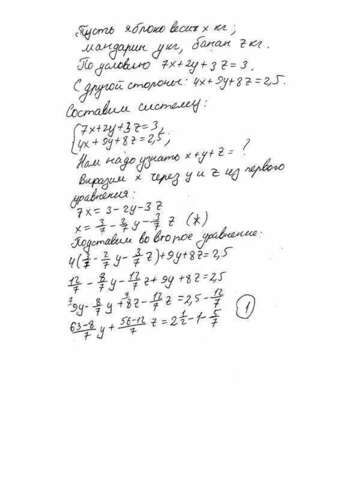 Пусть яблоко весит x кг;
мандарин y кг, банан z кг.
По условию 7x+2y+3z=3.
С другой стороны: 4x+9y+8z=2,5.
Составим систему:
{7x+2y+3z=3,
4x+9y+8z=2,5,
Нам надо узнать x+y+z=?
Выразим x через y и z из первого
уравнения:
7x=3-2y-3z
x=3/7-2/7y-3/7z (*)
Подставим во второе уравнение:
4(3/7-2/7y-3/7z)+9y+8z=2,5
12/7-8/7y-12/7z+9y+8z=2,5
9y-8/7y+8z-12/7z=2,5-12/7
63-8/7y+56-12/7z=2 1/2-1-5/7
1